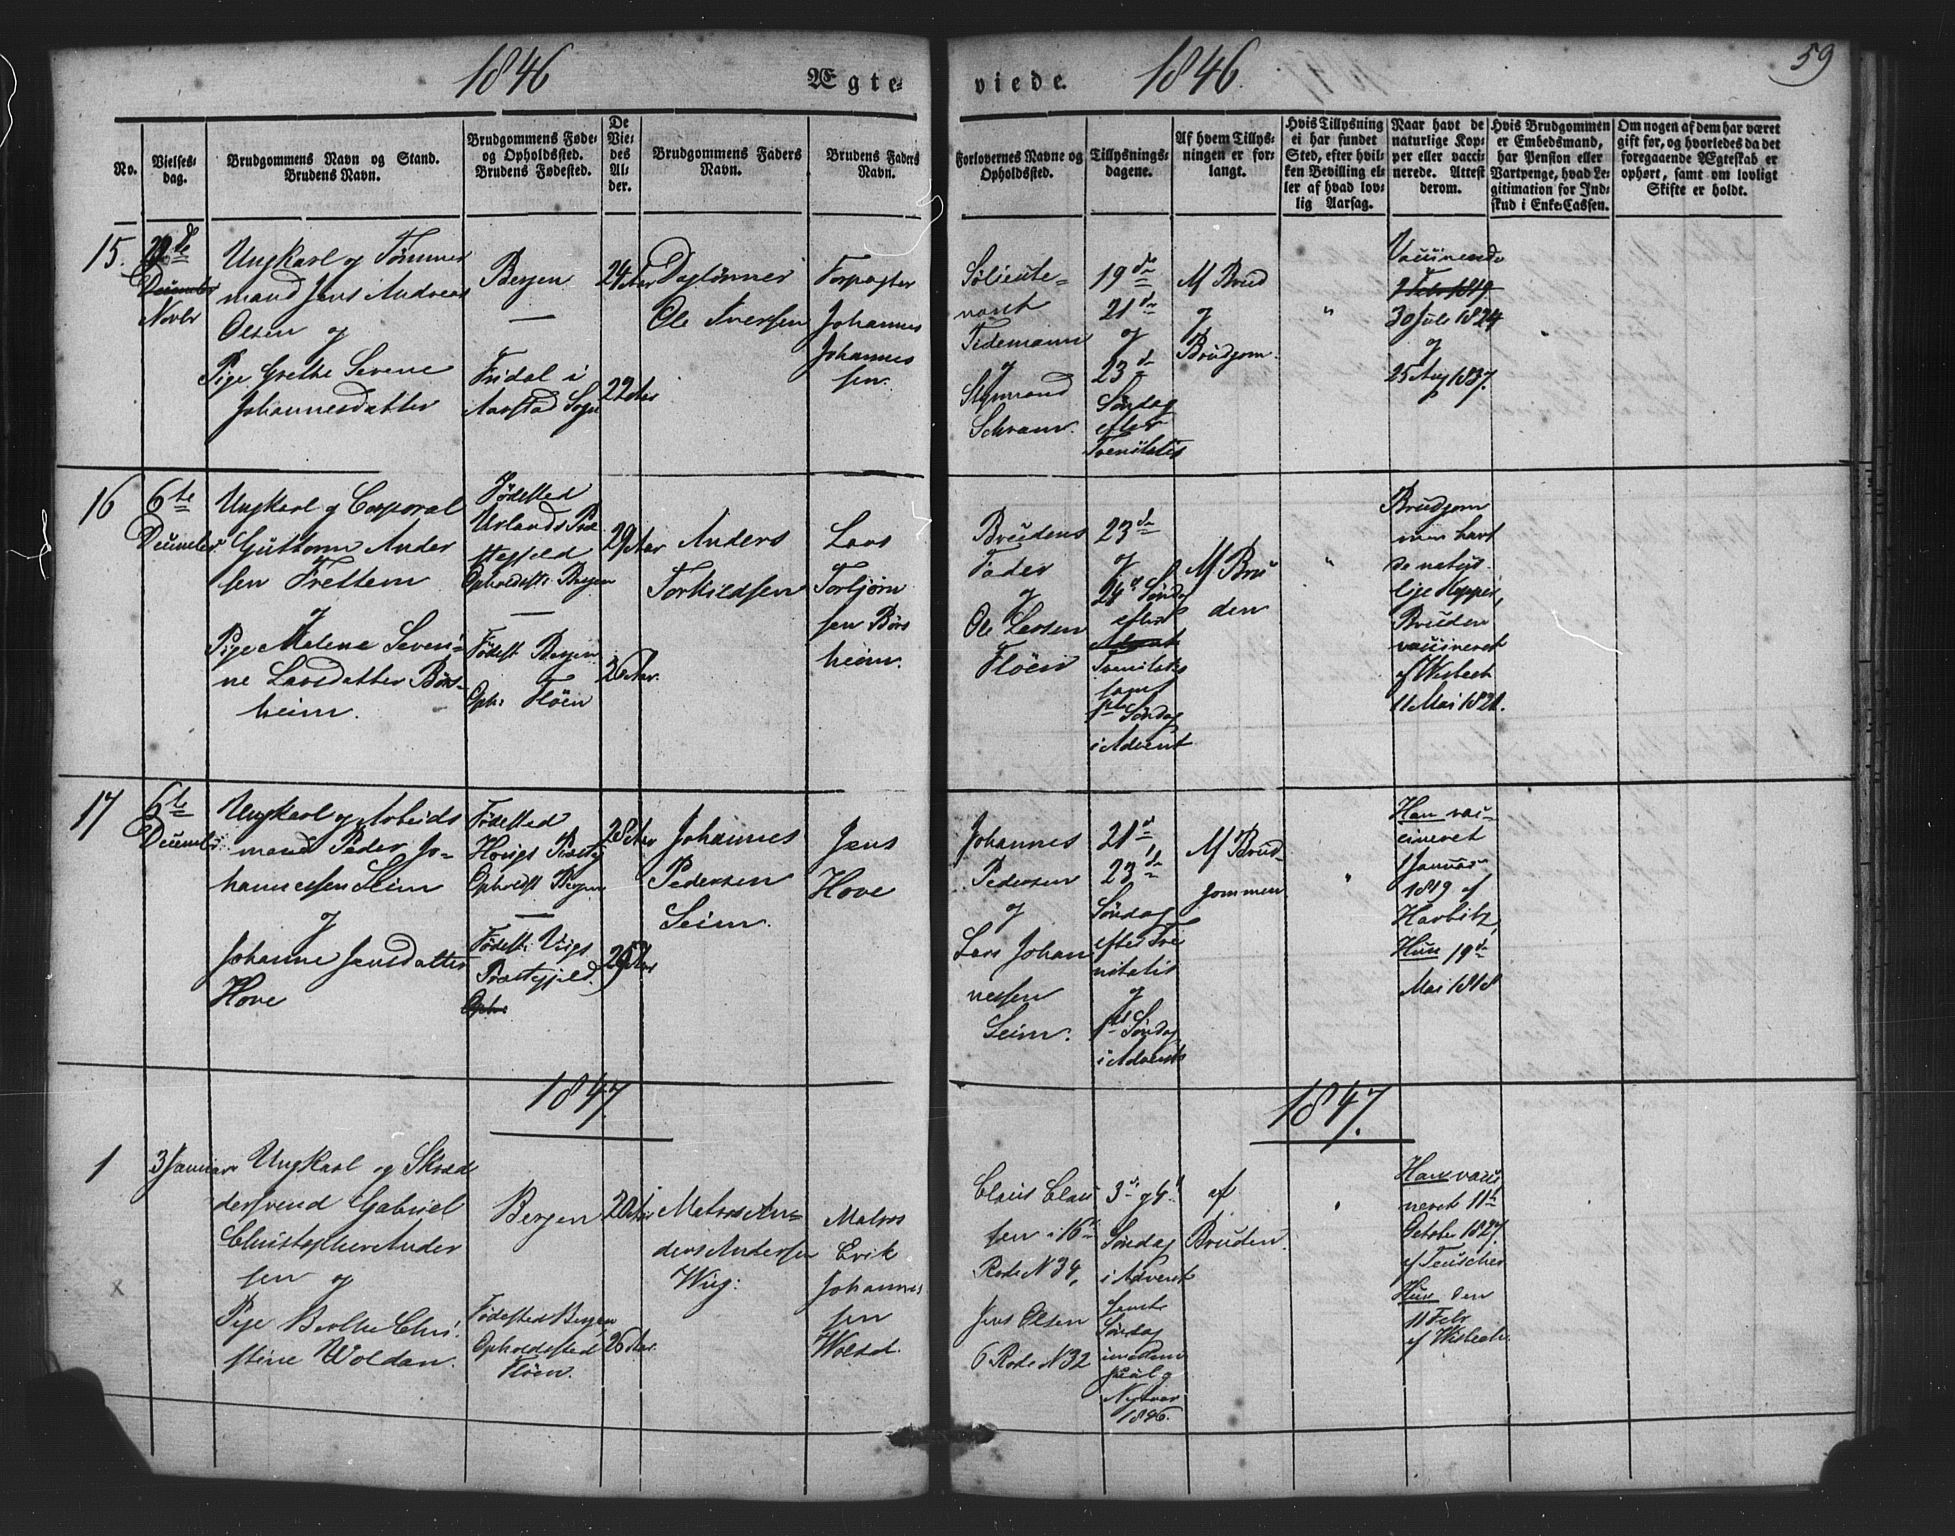 1846
Ægte-
viede.
1846.
59
No.
Vielses-
dag.
Brudgommens Navn og Stand.
Brudens Navn.
Brudgommens Føde-
og Opholdssted.
Brudens Fødested.
De
Vie-
des
Al-
der.
Brudgommens Faders
Navn.
Brudens Faders
Navn.
Forlovernes Navne og
Opholdssted.
Tillysnings-
dagene.
Af hvem Tillys-
ningen er for-
langt.
Hvis Tillysning
ei har fundet
Sted, efter hvil-
ken Bevilling el-
ler af hvad lov-
lig Aarsag.
Naar havt de
naturlige Kop-
per eller vacci-
nerede. Attest
derom.
Hvis Brudgommen
er Embedsmand,
har Pension eller
Vartpenge, hvad Le-
gitimation for Ind-
skud i Enke-Cassen.
Om nogen af dem har været
gift før, og hvorledes da det
foregaaende Ægteskab er
ophørt, samt om lovligt
Skifte er holdt.
15.
Decembr
Novbr
Ungkarl og Tømmer
mand Jens Andreas
Olsen og
Pige Grethe Severine
Johannesdatter
Bergen
Fridal i
Aarstad Sogn
24 Aar
22 Aar
Dagtønner
Ole Iversen
Forpagter
Johannes
Johannes
sen
Tidemann
og
Styrmand
Schram.
19de
21de
og
23de
Søndag
efter
Trenitatis
Af Brud
og
Brudgom.
"
Vaccinerede
30 Juli 1824
og
25 Aug 1837.
16
6te
Decembr
Ungkarl og Corporal
Guttorm Ander
sen Frettem
og
Pige Malene Severi-
ne Larsdatter Børs-
heim.
Fødested
Urlands Præ
stegjeld
Opholdsst. Bergen
Fødest. Bergen
Oph: Fløen
29 Aar
26 Aar.
Anders
Torkildsen
Lars
Torbjørn
sen Børs
heim.
Brudens
Fader
og
Ole Larsen
Fløen
23de
og
24de Sønda
efter
Advent
Trenitatis
samt
1ste Søndag
i Advent
Af Bru
den
"
Brudgom
men havt
de natur-
lige Kopper,
Bruden
vaccineret
af Wisbech
11 Mai 1821.
17
6te
Decembr
Ungkarl og Arbeids
mand Peder Jo-
hannessen Seim
og
Johanne Jensdatter
Hove
Fødested
Opholdsst Bergen
Fødest: Vigs
Præstegjeld.
Oph:
28 Aar
Johannes
Pedersen
Seim.
Jens
Hove
Johannes
Pedersen
og
Lars Johan
nessen
Seim.
21de
23de
Søndag
efter Tre
nitatis
og
1ste Søndag
i Advent
Af Brud-
gommen
"
Han vac-
cineret
1 Januar
1819 af
Harbitz,
Hun 19de
Mai 1818
1847
1847.
1
3 Januar
Ungkarl og Skræd
dersvend Gabriel
Christopher Ander
sen og
Pige Berthe Chri
stine Woldan.
Bergen
Fødested Bergen
Opholdssted
Fløen.
26 Aar.
Matros An-
ders Andersen
Wiig:
Matros
Erik
Johannes
sen
Claus Clau
sen i 16de
Rode N 34,
Jens Olsen
6 Rode N 32
3de og 4de
Søndag
i Advent
samt
Søndag
imellem
Juul og
Nytaar
1846.
af
Bruden.
"
Han vacci
neret 11te
October 1827.
af Teuscher
Hun den
11 Febr
af Wisbech.
x